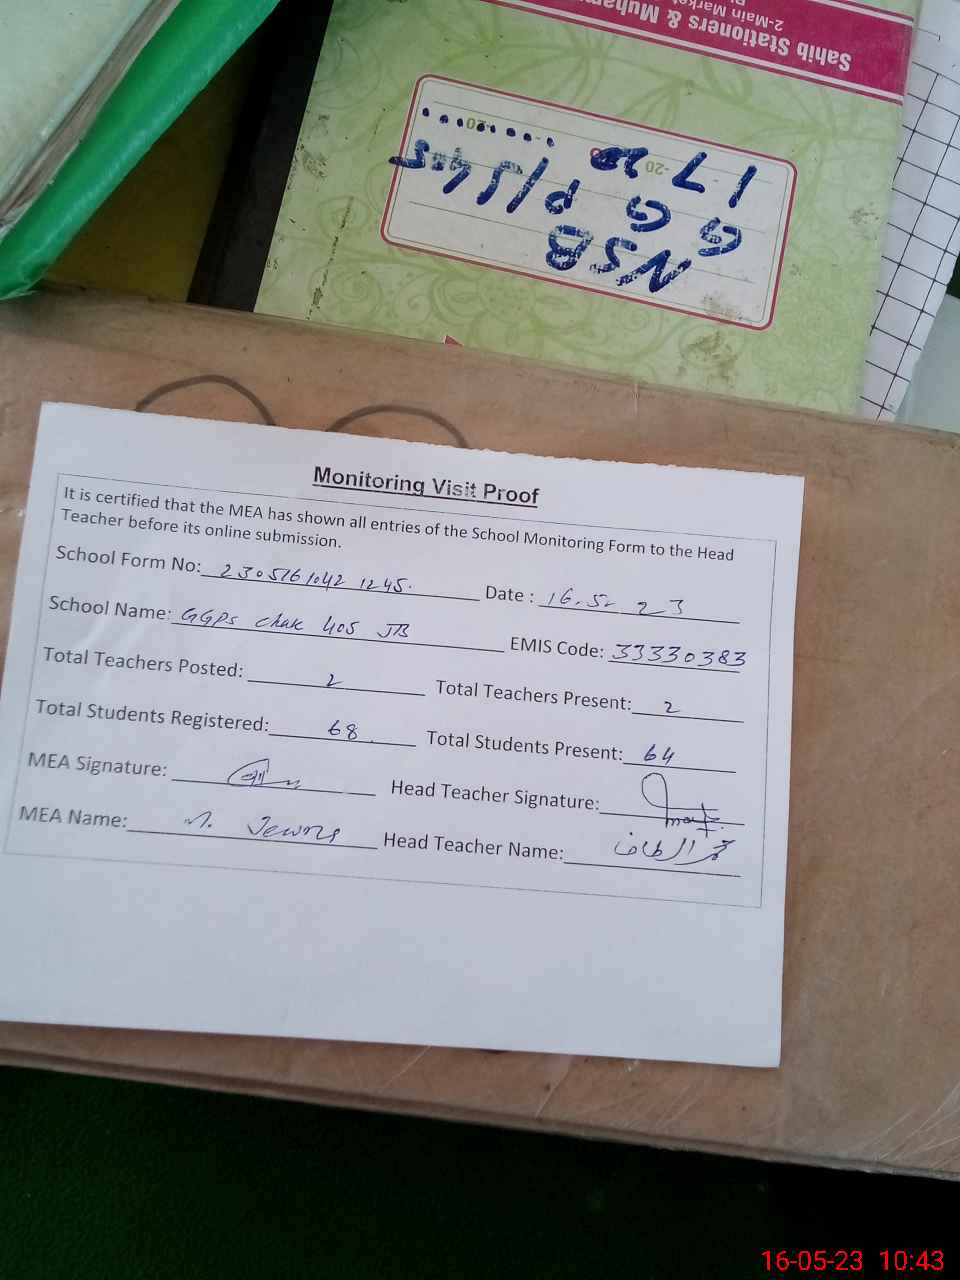 Sahib Stationers &
2-Main Market
NSB
G G P/S 405
Monitoring Visit Proof
It is certified that the MEA has shown all entries of the School Monitoring Form to the Head
Teacher before its online submission.
School Form No: 2305161042 1245. Date : 16.5. 23
School Name: GGPS Chak 405 JB EMIS Code: 33330383
Total Teachers Posted: 2 Total Teachers Present: 2
Total Students Registered: 68 Total Students Present: 64
MEA Signature: Head Teacher Signature:
MEA Name: Head Teacher Name:
16-05-23 10:43